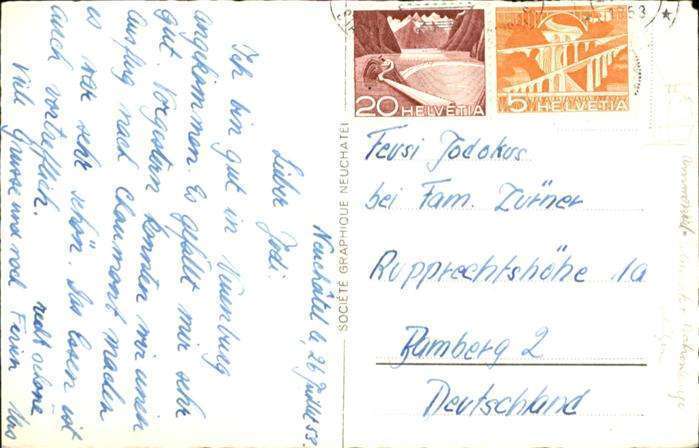 Neuchâtel le, 26 Juillet 53.
Lieber Jodi.
Ich bin gut in Neuenburg
angekommen. Es gefällt mir sehr
gut. Vorgestern konnten wir einen
Ausflug nach Chaumont machen
es war sehr schön. Das Essen ist
auch vortrefflich.
Viele Grüsse und noch recht schöne
Ferien Urs
SOCIÉTÉ GRAPHIQUE NEUCHATEL
20 HELVETIA
5 HELVETIA
Feusi Jodokus
bei Fam. Zürner
Rupprechtshöhe 1a
Bamberg 2
Deutschland